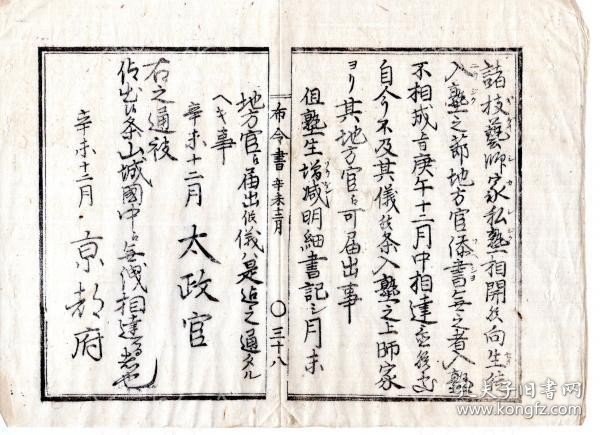 諸技藝師家私塾相開候向生徒
入塾之節地方官添書無之者入塾
不相成旨庚午十二月中相達置候処
自今不及其儀候条入塾之上師家
ヨリ其地方官江可届出事
但塾生増減明細書記シ月末
布令書 辛未十二月 〇 三十八
地方官江届出候儀ハ是迄之通タル
ヘキ事
辛未十二月 太政官
右之通被
仰出候条山城國中江無洩相達るもの也
辛未十二月 京都府
孔夫子旧书网
www.kongfz.com